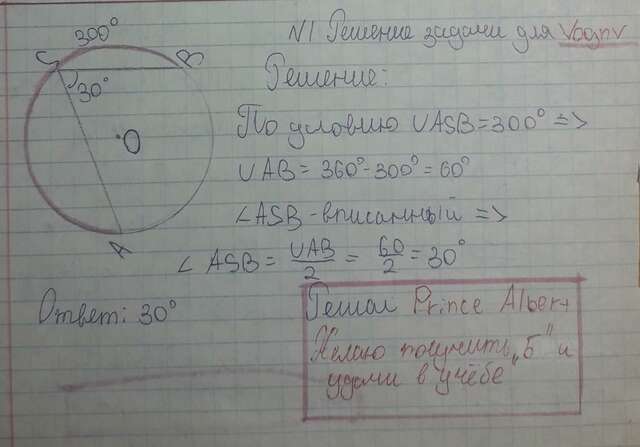 N1 Решение задачи для Vognv
300°
S
B
30°
O
A
Решение:
По условию ∪ASB=300° =>
∪AB = 360°-300° = 60°
∠ASB - вписанный =>
∠ASB = ∪AB/2 = 60/2 = 30°
Ответ: 30°
Решал Prince Albert
Желаю получить „5" и
удачи в учёбе